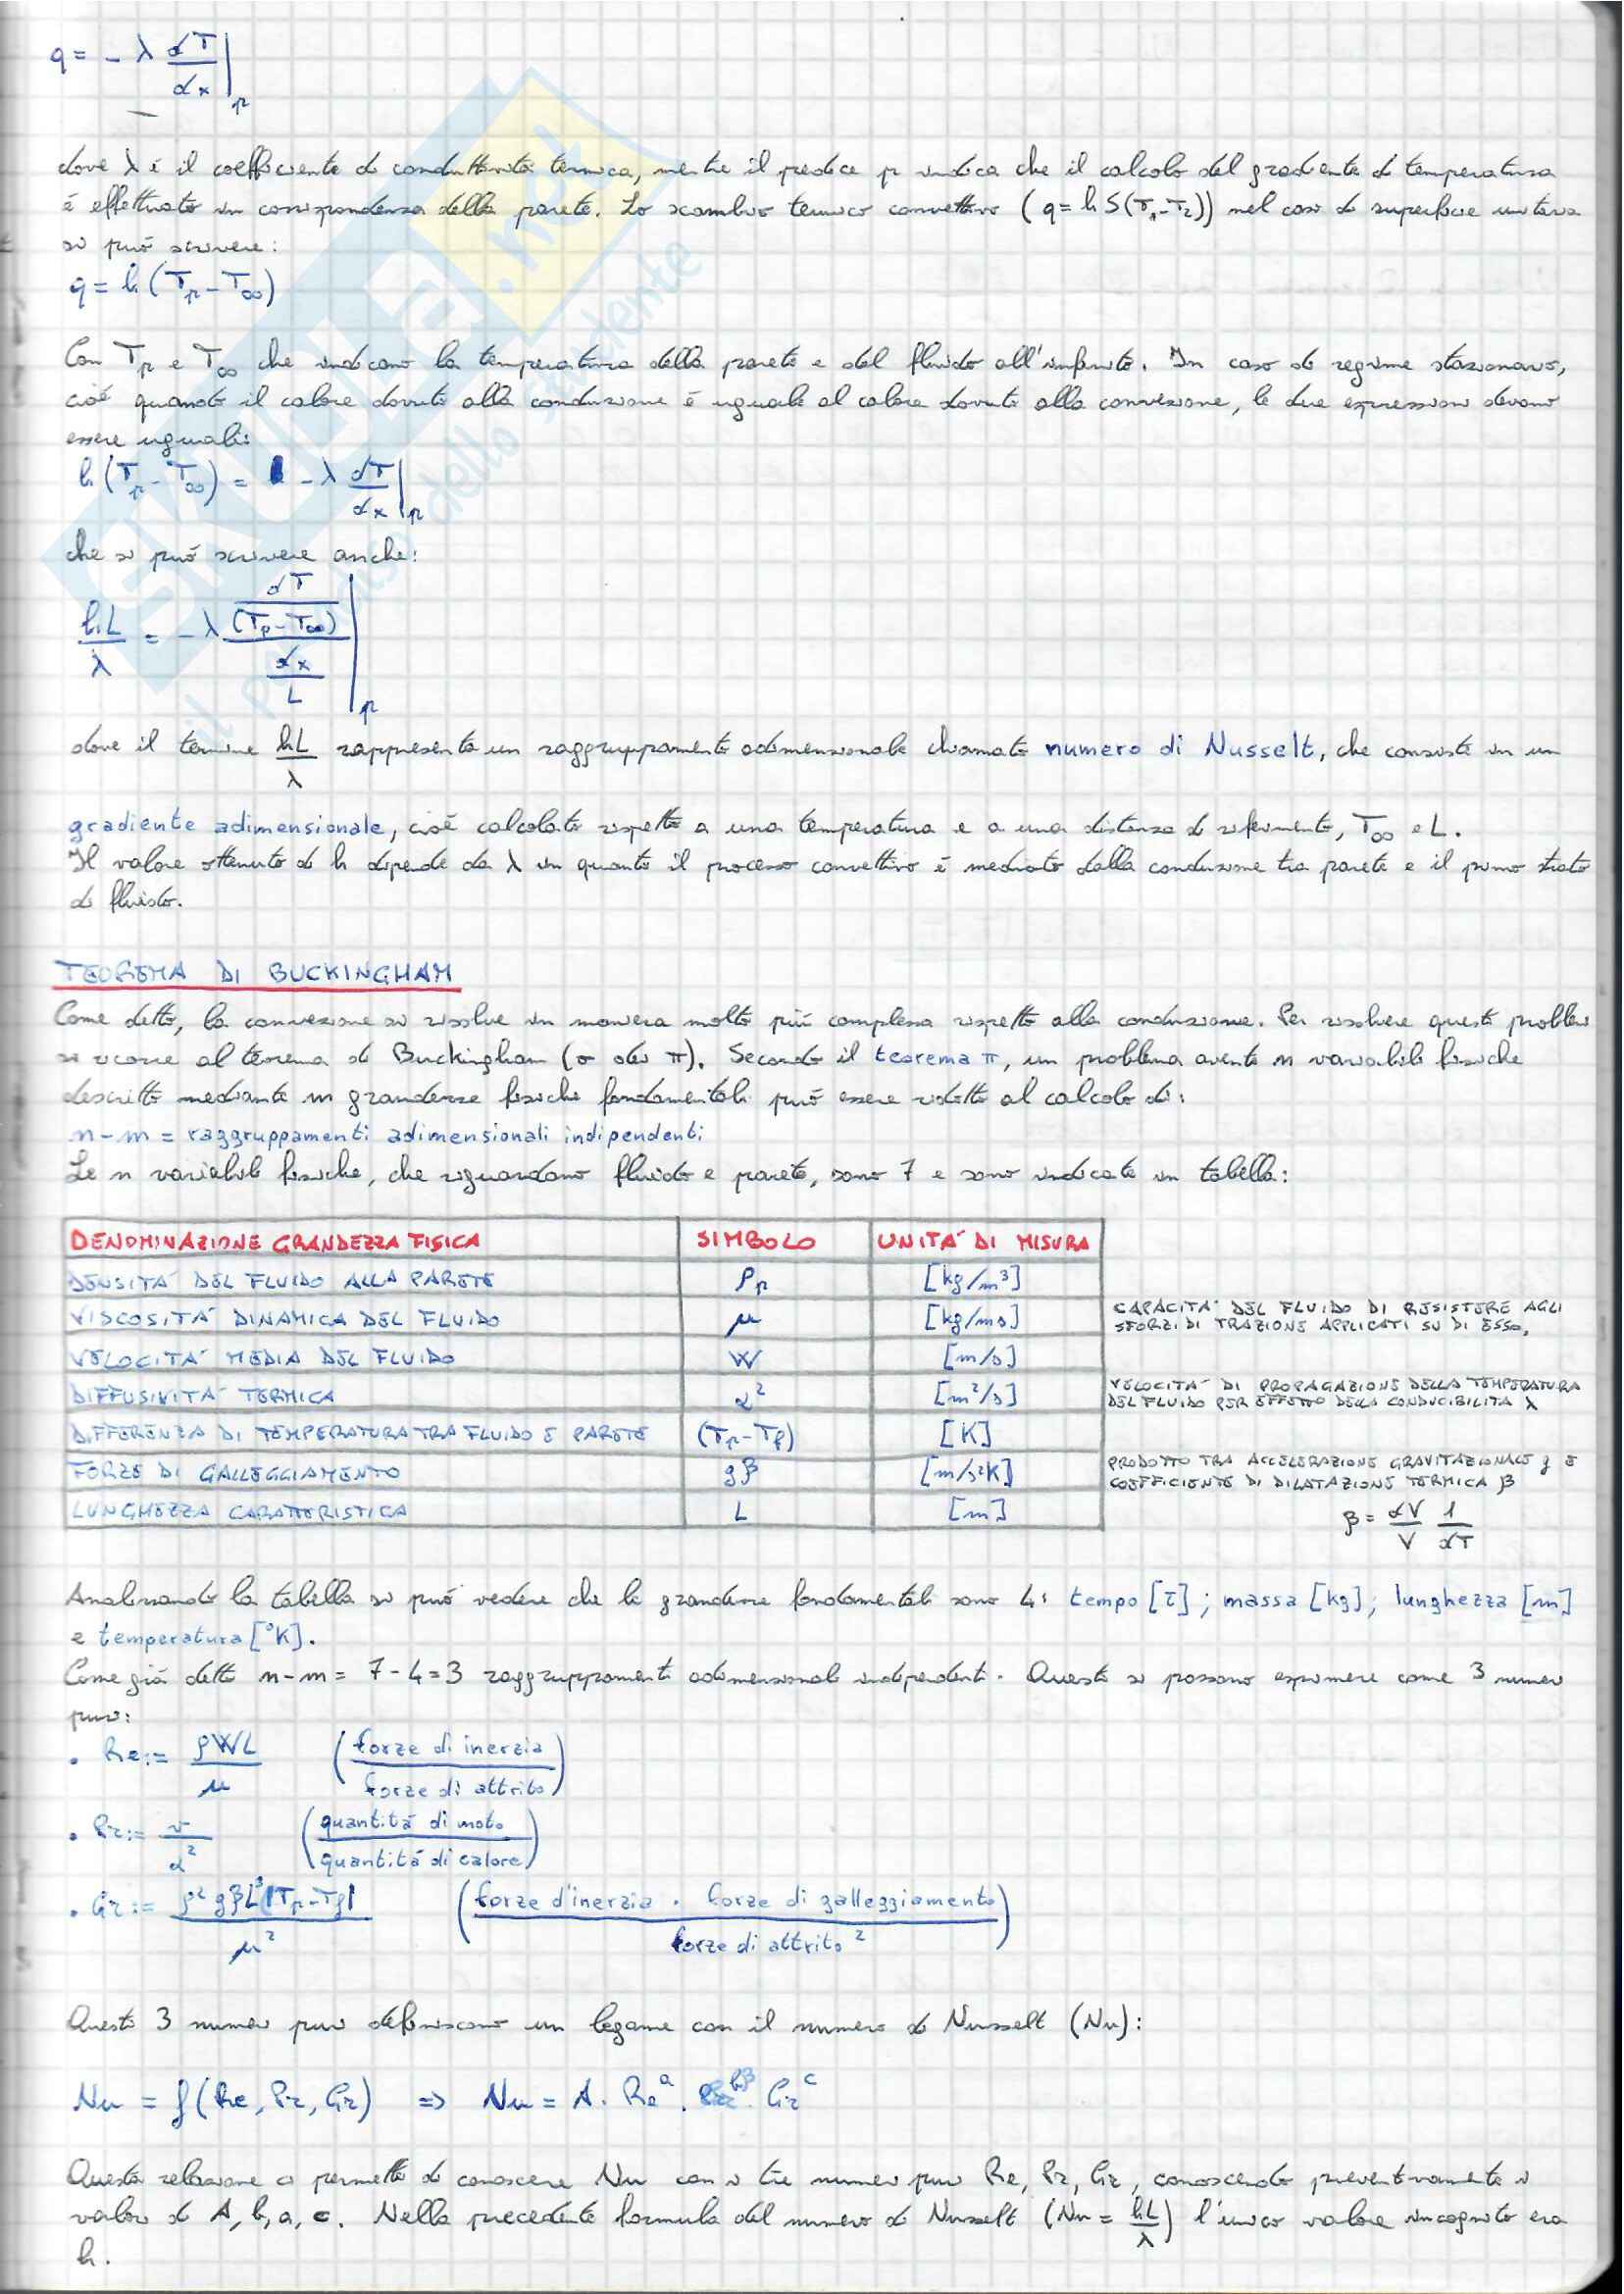 q = - λ dT/dx |p
dove λ è il coefficiente di conduttività termica, mentre il pedice p indica che il calcolo del gradiente di temperatura
è effettuato in corrispondenza della parete. Lo scambio termico convettivo (q = h S(T1-T2)) nel caso di superficie unitaria
si può scrivere:
q = h (Tp - T∞)
Con Tp e T∞ che indicano la temperatura della parete e del fluido all'infinito. In caso di regime stazionario,
cioè quando il calore dovuto alla conduzione è uguale al calore dovuto alla convezione, le due espressioni devono
essere uguali:
h (Tp - T∞) = - λ dT/dx |p
che si può scrivere anche:
hL/λ = - λ (dT/(Tp - T∞))/(dx/L) |p
dove il termine hL/λ rappresenta un raggruppamento adimensionale chiamato numero di Nusselt, che consiste in un
gradiente adimensionale, cioè calcolato rispetto a una temperatura e a una distanza di riferimento, T∞ e L.
Il valore ottenuto di h dipende da λ in quanto il processo convettivo è mediato dalla conduzione tra parete e il primo strato
di fluido.
TEOREMA DI BUCKINGHAM
Come detto, la convezione si risolve in maniera molto più complessa rispetto alla conduzione. Per risolvere questi problemi
si ricorre al teorema di Buckingham (o dei π). Secondo il teorema π, un problema avente n variabili fisiche
descritto mediante m grandezze fisiche fondamentali può essere ridotto al calcolo di:
n-m = raggruppamenti adimensionali indipendenti
Le n variabili fisiche, che riguardano fluido e parete, sono 7 e sono indicate in tabella:
DENOMINAZIONE GRANDEZZA FISICA SIMBOLO UNITA' DI MISURA
DENSITA' DEL FLUIDO ALLA PARETE ρp [kg/m³]
VISCOSITA' DINAMICA DEL FLUIDO μ [kg/ms] CAPACITA' DEL FLUIDO DI RESISTERE AGLI
SFORZI DI TRAZIONE APPLICATI SU DI ESSO.
VELOCITA' MEDIA DEL FLUIDO W [m/s]
DIFFUSIVITA' TERMICA α² [m²/s] VELOCITA' DI PROPAGAZIONE DELLA TEMPERATURA
DEL FLUIDO PER EFFETTO DELLA CONDUCIBILITA λ
DIFFERENZA DI TEMPERATURA TRA FLUIDO E PARETE (Tp-Tf) [K]
FORZE DI GALLEGGIAMENTO gβ [m/s²K] PRODOTTO TRA ACCELERAZIONE GRAVITAZIONALE g E
COEFFICIENTE DI DILATAZIONE TERMICA β
LUNGHEZZA CARATTERISTICA L [m]
β = dV/V 1/dT
Analizzando la tabella si può vedere che le grandezze fondamentali sono 4: tempo [τ]; massa [kg]; lunghezza [m]
e temperatura [°K].
Come già detto n-m = 7-4=3 raggruppamenti adimensionali indipendenti. Questi si possono esprimere come 3 numeri
puri:
• Re:= ρWL/μ (forze di inerzia/forze di attrito)
• Pr:= ν/α² (quantità di moto/quantità di calore)
• Gr:= ρ² gβL³|Tp-Tf|/μ² (forze d'inerzia · forze di galleggiamento/forze di attrito²)
Questi 3 numeri puri definiscono un legame con il numero di Nusselt (Nu):
Nu = f(Re, Pr, Gr) => Nu = A · Re^a · Pr^b · Gr^c
Questa relazione ci permette di conoscere Nu con i tre numeri puri Re, Pr, Gr, conoscendo preventivamente i
valori di A, b, a, c. Nella precedente formula del numero di Nusselt (Nu = hL/λ) l'unico valore incognito era
h.